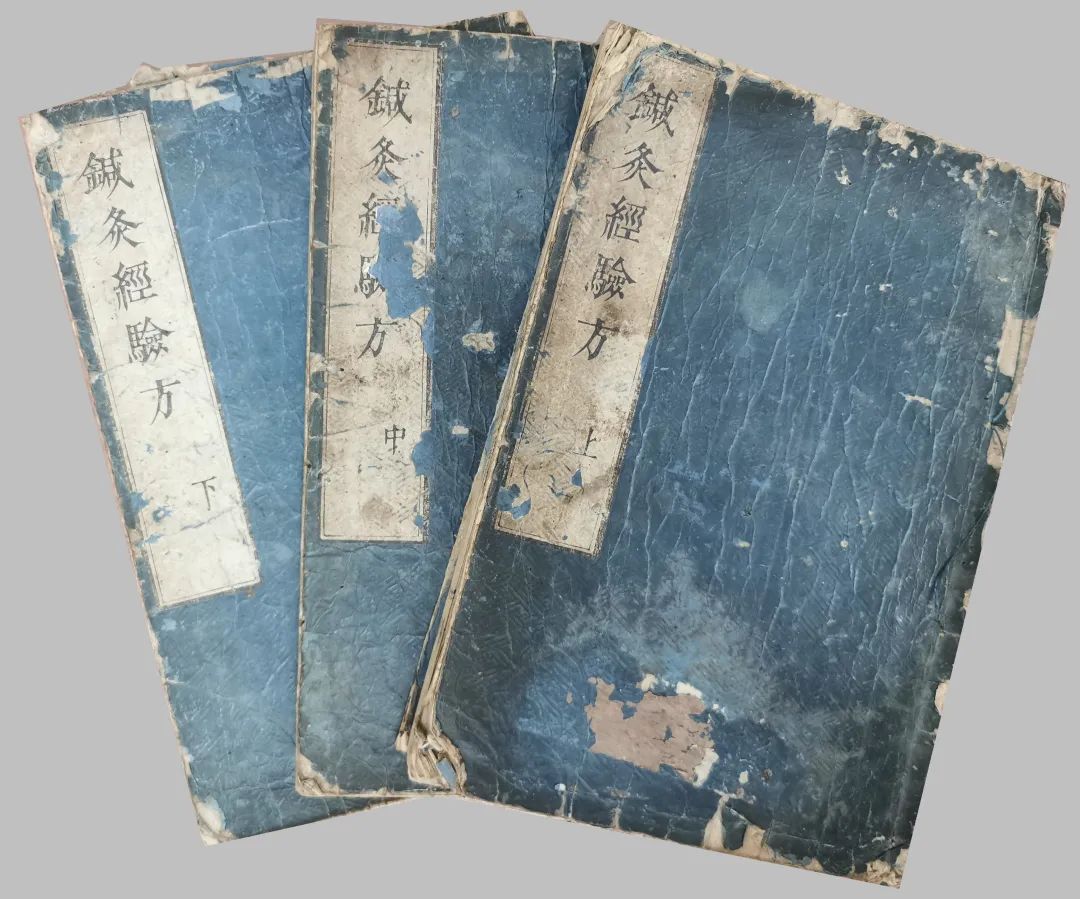 鍼灸經驗方
上
鍼灸經驗方
中
鍼灸經驗方
下